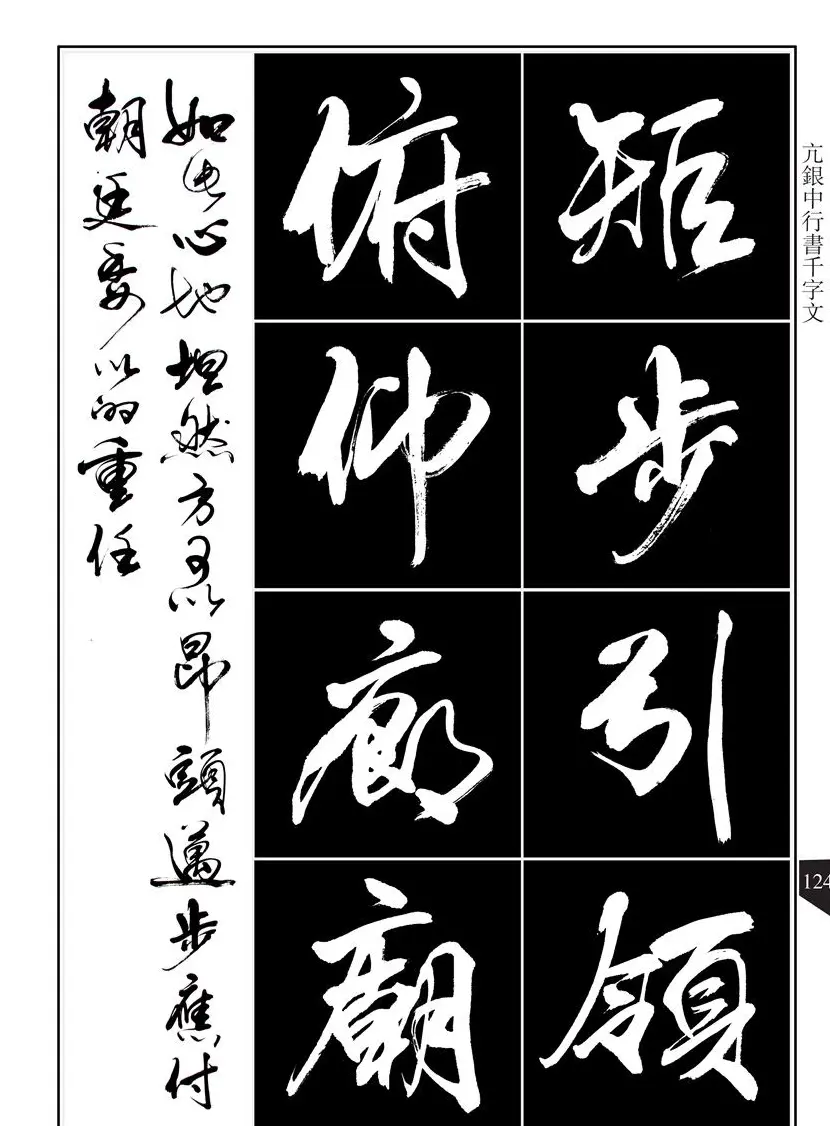 亢銀中行書千字文
124
矩步引領
俯仰廊廟
如此心地坦然方可以昂頭邁步應付
朝廷委以的重任